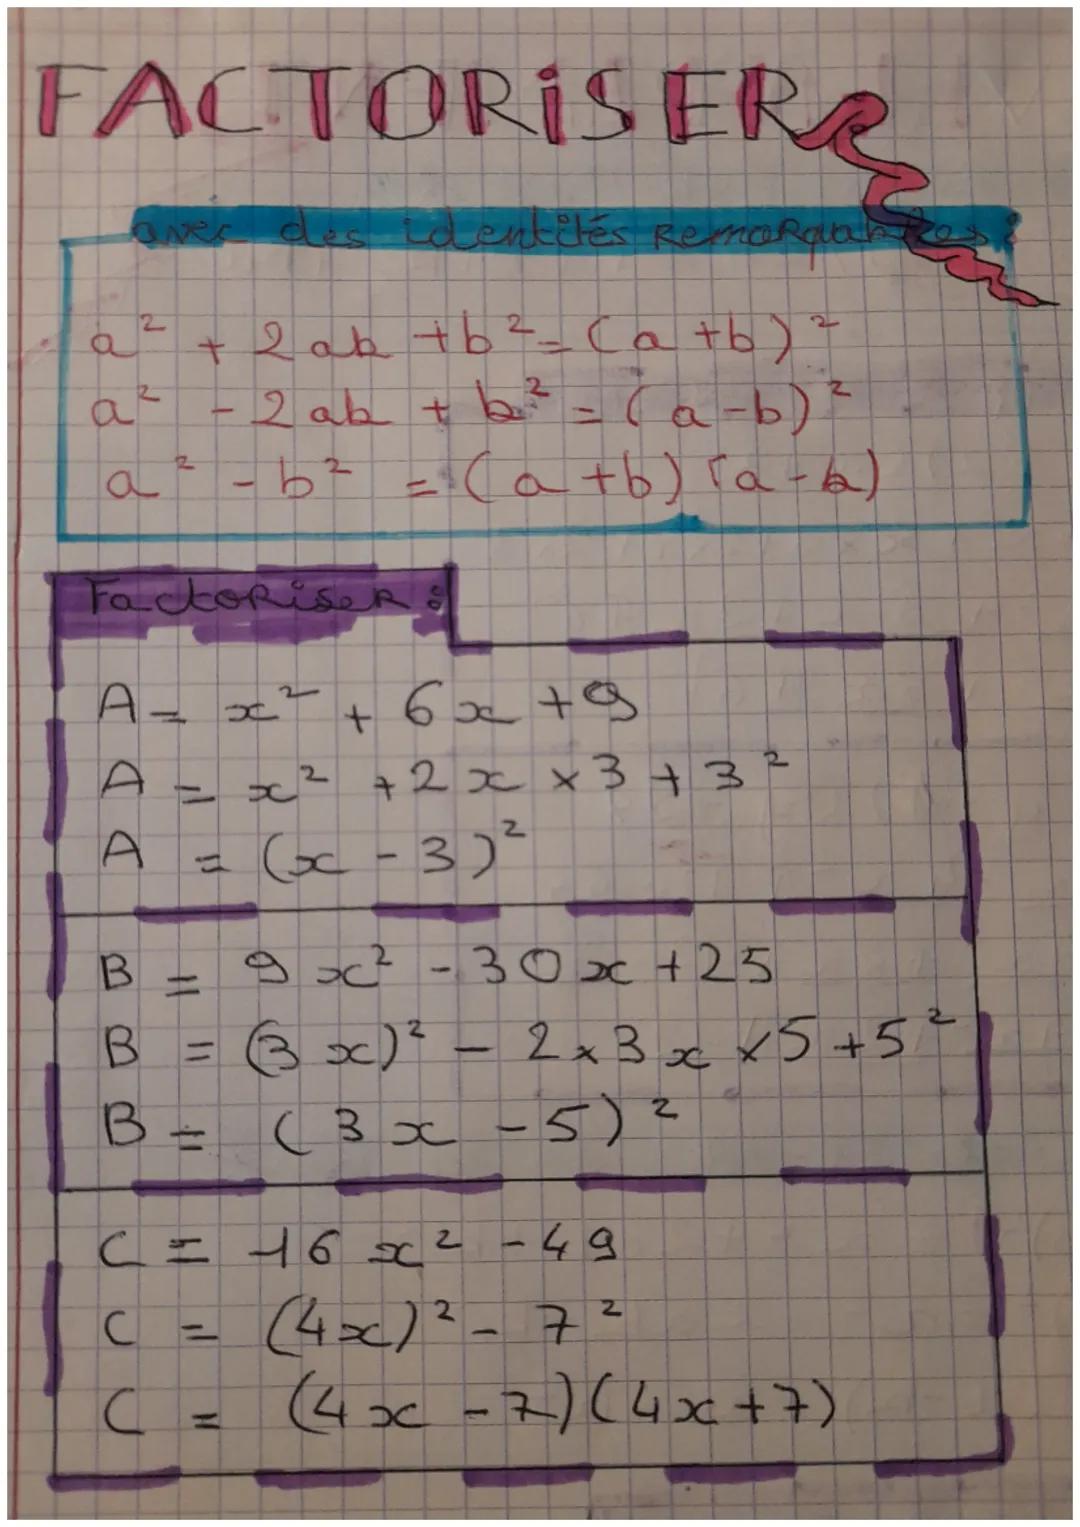 FACTORiSER
avec des identités Remarquables :
a² + 2ab + b² = (a + b)²
a² - 2ab + b² = (a - b)²
a² - b² = (a + b) (a - b)
FactoRiseR :
A = x² + 6x + 9
A = x² + 2x × 3 + 3²
A = (x - 3)²
B = 9x² - 30x + 25
B = (3x)² - 2 × 3x × 5 + 5²
B = (3x - 5)²
C = 16x² - 49
C = (4x)² - 7²
C = (4x - 7)(4x + 7)